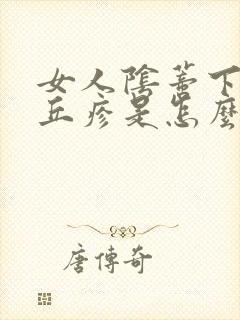 女人陰蒂下
丘疹是怎麼
唐傳奇